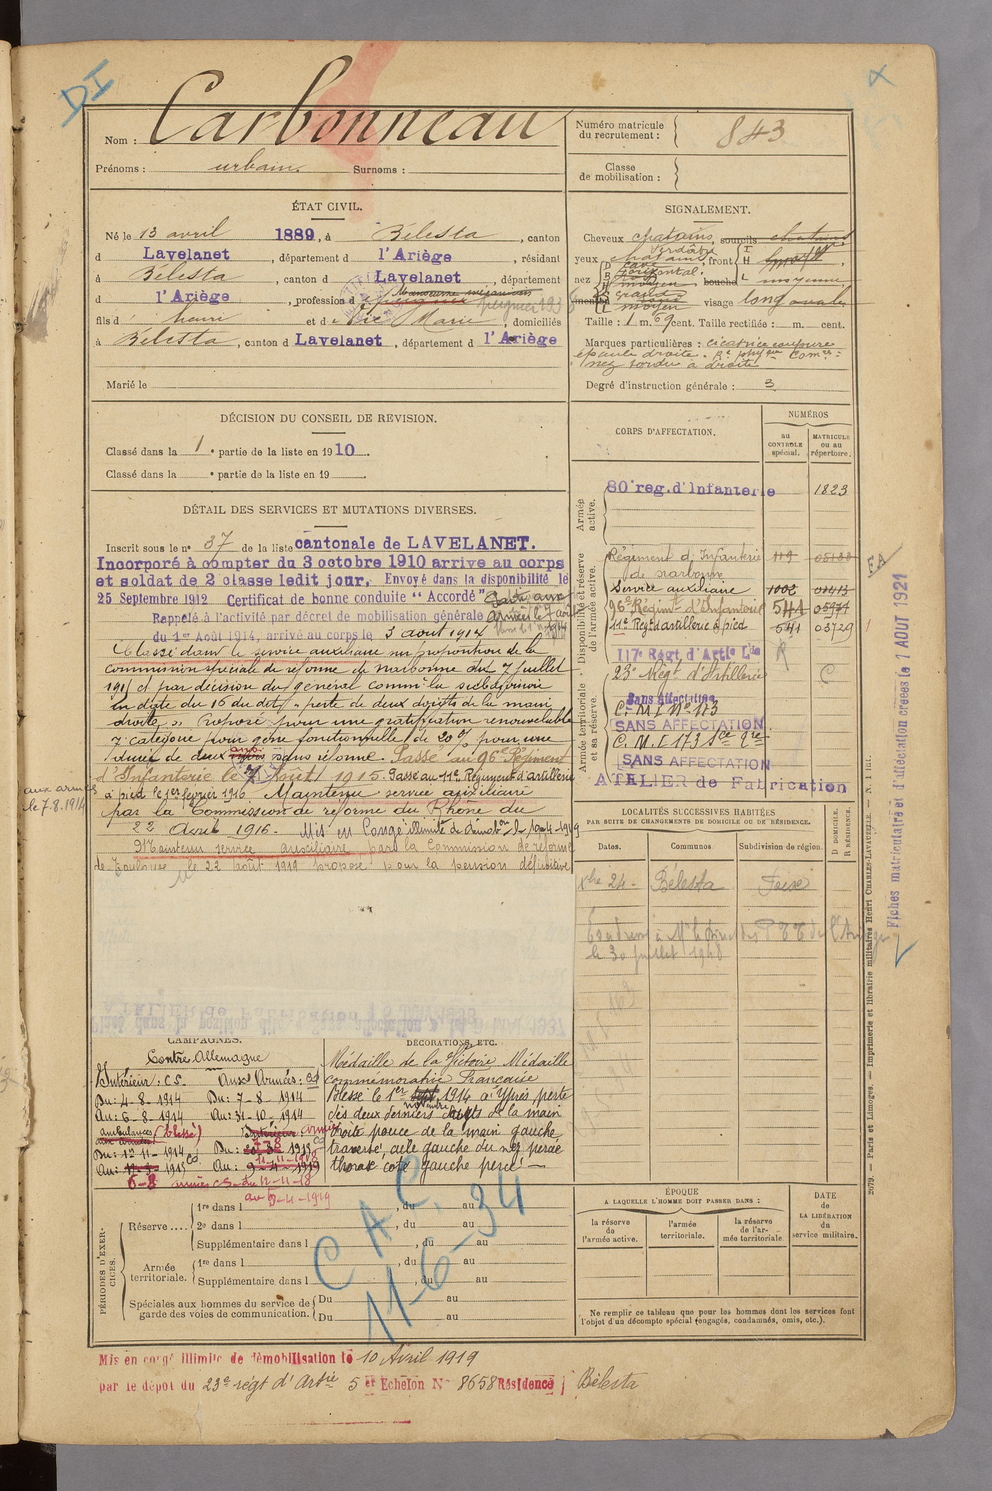 DI
Nom : Carbonneau
Prénoms : urbain. Surnoms :
Numéro matricule
du recrutement : 843
Classe
de mobilisation :
ÉTAT CIVIL.
Né le 13 avril 1889, à Bélesta, canton
d Lavelanet, département d l'Ariège, résidant
à Bélesta, canton d Lavelanet, département
d l'Ariège, profession d
fils d henri et d Marie, domiciliés
à Bélesta, canton d Lavelanet, département d l'Ariège
Marié le
SIGNALEMENT.
Cheveux chatains, sourcils chatains
yeux chatains, front
nez bouche moyenne
visage long ovale
Taille : 1 m. 69 cent. Taille rectifiée : m. cent.
Marques particulières : cicatrice coupure
épaule droite.
nez tordu à droite
Degré d'instruction générale : 3
DÉCISION DU CONSEIL DE REVISION.
Classé dans la 1e partie de la liste en 1910.
Classé dans la e partie de la liste en 19
DÉTAIL DES SERVICES ET MUTATIONS DIVERSES.
Inscrit sous le n° 37 de la liste cantonale de LAVELANET.
Incorporé à compter du 3 octobre 1910 arrive au corps
et soldat de 2 classe ledit jour. Envoyé dans la disponibilité le
25 Septembre 1912 Certificat de bonne conduite "Accordé"
Rappelé à l'activité par décret de mobilisation générale
du 1er Août 1914, arrivé au corps le 3 août 1914
Classé dans le service auxiliaire sur proposition de la
commission spéciale de réforme de Narbonne du 7 juillet
1915 et par décision du général comm' la subdivision
en date du 15 du dot "perte de deux doigts de la main
droite" Proposé pour une gratification renouvelable
7e catégorie pour gêne fonctionnelle de 20 % pour une
durée de deux ans sans réforme. Passé au 96e Régiment
d'Infanterie le 7 Août 1915. Passé au 11e Régiment d'artillerie
à pied le 1er février 1916 Maintenu service auxiliaire
par la Commission de réforme du Rhône du
22 Avril 1916. Mis en Congé illimité de démob
Maintenu service auxiliaire par la Commission de réforme
de Toulouse le 22 août 1919 proposé pour la pension définitive
aux armées
le 7.8.1914
CORPS D'AFFECTATION.
NUMÉROS
au
CONTRÔLE
spécial.
MATRICULE
ou au
répertoire.
Armée
active.
80e reg. d'Infanterie 1823
Disponibilité et réserve
de l'armée active.
Régiment d'Infanterie 119
de Narbonne
Service auxiliaire 1002
96e Régiment d'Infanterie 544
11e Régt d'artillerie à pied 541 03729
Armée territoriale
et sa réserve.
117e Régt d'Artie Lde
23e Régt d'Artillerie C
Sans Affectation
C. M. I. N° 173
SANS AFFECTATION
C. M. I. 173
SANS AFFECTATION
ATELIER de Fabrication
LOCALITÉS SUCCESSIVES HABITÉES
PAR SUITE DE CHANGEMENTS DE DOMICILE OU DE RÉSIDENCE.
Dates. Communes. Subdivision de région. D DOMICILE. R RÉSIDENCE.
Xbre 24 - Belesta Foix
le 30 juillet 1948
FA
Fiches matriculaire et d'affectation créées le 1 AOUT 1921
2079. — Paris et Limoges. — Imprimerie et librairie militaires Henri CHARLES-LAVAUZELLE. — N. 1 int.
CAMPAGNES.
Contre Allemagne
Intérieur : CS. Aux Armées : CD
Du : 4-8-1914 Du : 7-8-1914
Au : 6-8-1914 Au : 31-10-1914
(blessé)
Du : 1-11-1914
au 9-4-1919
DÉCORATIONS, ETC.
Médaille de la Victoire Médaille
commémorative Française
Blessé le 1er novembre 1914 à Ypres perte
des deux derniers doigts de la main
droite pouce de la main gauche
traversé, aile gauche du nez percée
thorax coté gauche percé. —
PÉRIODES D'EXERCICES.
Réserve ....
1re dans l , du au
2e dans l , du au
Supplémentaire dans l , du au
Armée
territoriale.
1re dans l , du au
Supplémentaire dans l , du au
Spéciales aux hommes du service de
garde des voies de communication.
Du au
Du au
C A C.
11-6-34
ÉPOQUE
A LAQUELLE L'HOMME DOIT PASSER DANS :
la réserve
de
l'armée active.
l'armée
territoriale.
la réserve
de l'ar-
mée territoriale.
DATE
de
LA LIBÉRATION
du
service militaire.
Ne remplir ce tableau que pour les hommes dont les services font
l'objet d'un décompte spécial (engagés, condamnés, omis, etc.).
Mis en congé illimité de démobilisation le 10 Avril 1919
par le dépôt du 23e régt d'Artie 5e Echelon N° 8658 Résidence Bélesta